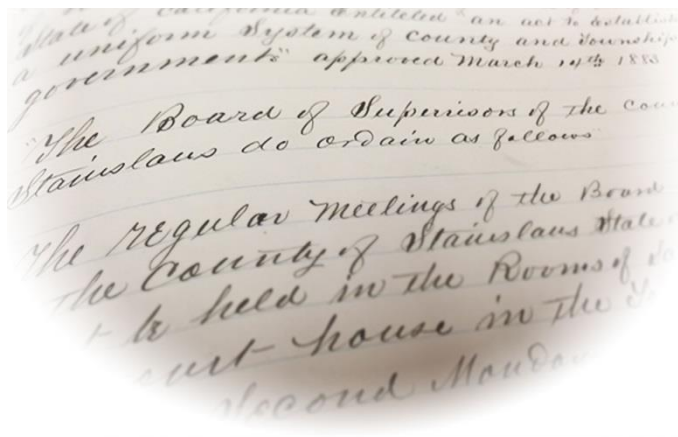 State of California entitled "an act to establish
a uniform System of County and Township
governments" approved March 14th 1883
"The Board of Supervisors of the Coun
Stanislaus do ordain as follows
The regular meetings of the Board
the County of Stanislaus State
be held in the Rooms of
ourt house in the
Second Monday